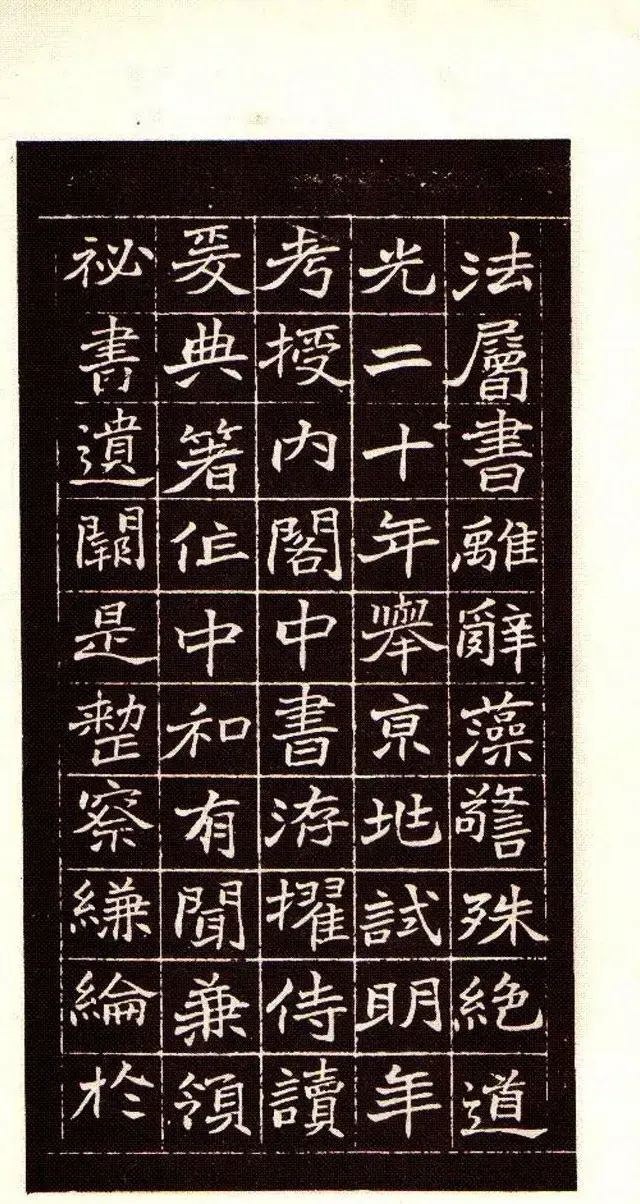 法屬書離辭藻警殊絕道
光二十年舉京地試明年
考授內閣中書洊擢侍讀
爰典著作中和有聞兼領
祕書遺闕是整察縑綸於